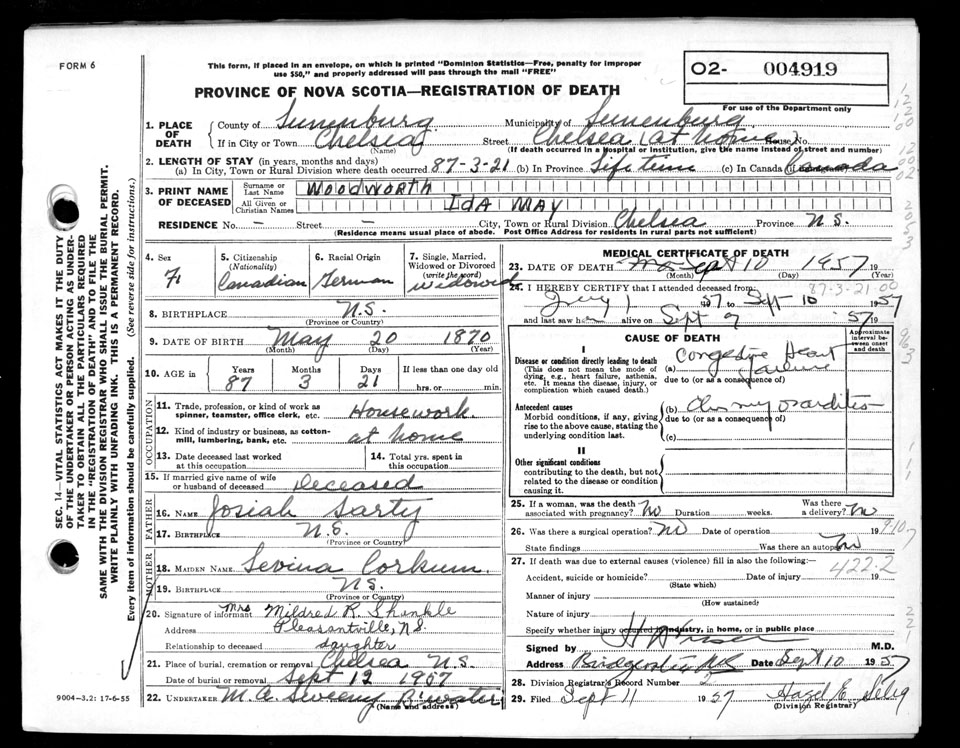 FORM 6
This form, if placed in an envelope, on which is printed "Dominion Statistics—Free, penalty for improper
use $50," and properly addressed will pass through the mail "FREE"
O2- 004919
For use of the Department only
PROVINCE OF NOVA SCOTIA—REGISTRATION OF DEATH
1. PLACE OF DEATH
County of Lunenburg Municipality of Lunenburg
If in City or Town Chelsea Street Chelsea (at home) House No.
(If death occurred in a Hospital or Institution, give the name instead of street and number)
2. LENGTH OF STAY (in years, months and days)
(a) In City, Town or Rural Division where death occurred 87-3-21 (b) In Province Life time (c) In Canada (if Canada
3. PRINT NAME OF DECEASED
Surname or Last Name WOODWORTH
All Given or Christian Names IDA MAY
RESIDENCE No. – Street – City, Town or Rural Division Chelsea Province N.S.
(Residence means usual place of abode. Post Office Address for residents in rural parts not sufficient)
4. Sex F
5. Citizenship (Nationality) Canadian
6. Racial Origin German
7. Single, Married, Widowed or Divorced (write the word) widowed
8. BIRTHPLACE N.S.
(Province or Country)
9. DATE OF BIRTH May 20 1870
(Month) (Day) (Year)
10. AGE in Years 87 Months 3 Days 21 If less than one day old
hrs. or min.
OCCUPATION
11. Trade, profession, or kind of work as spinner, teamster, office clerk, etc. Housework
12. Kind of industry or business, as cotton-mill, lumbering, bank, etc. at home
13. Date deceased last worked at this occupation
14. Total yrs. spent in this occupation
15. If married give name of wife or husband of deceased Deceased
FATHER
16. NAME Josiah Sarty
17. BIRTHPLACE N.S.
(Province or Country)
MOTHER
18. MAIDEN NAME Sevina Corkum
19. BIRTHPLACE N.S.
(Province or Country)
20. Signature of informant Mrs Mildred R. Shankle
Address Pleasantville, N.S.
Relationship to deceased daughter
21. Place of burial, cremation or removal Chelsea N.S.
Date of burial or removal Sept 12 1957
22. UNDERTAKER M.C. Sweeny B'water
(Name and address)
9004—3.2: 17-6-55
MEDICAL CERTIFICATE OF DEATH
23. DATE OF DEATH Sept 10 1957 19
(Month) (Day)
87-3-21-00
24. I HEREBY CERTIFY that I attended deceased from:
1 57 to Sept 10 1957
and last saw her alive on Sept 9 57 19
CAUSE OF DEATH
Approximate interval between onset and death
I
Disease or condition directly leading to death
(This does not mean the mode of dying, e.g., heart failure, asthenia, etc. It means the disease, injury, or complication which caused death.)
(a) Congestive Heart failure
due to (or as a consequence of)
Antecedent causes
Morbid conditions, if any, giving rise to the above cause, stating the underlying condition last.
(b) Chr myocarditis
due to (or as a consequence of)
(c)
II
Other significant conditions
contributing to the death, but not related to the disease or condition causing it.
25. If a woman, was the death associated with pregnancy? No Duration weeks. Was there a delivery? No
26. Was there a surgical operation? No Date of operation 19
State findings Was there an autopsy No
27. If death was due to external causes (violence) fill in also the following:—
422-2
Accident, suicide or homicide? Date of injury 19
(State which)
Manner of injury
(How sustained)
Nature of injury
Specify whether injury occurred in industry, in home, or in public place
Signed by M.D.
Address Bridgewater NS Date Sept 10 1957
28. Division Registrar's Record Number 2
29. Filed Sept 11 1957 Hazel E. Selig
(Division Registrar)
SEC. 14—VITAL STATISTICS ACT MAKES IT THE DUTY
OF THE UNDERTAKER OR PERSON ACTING AS UNDER-
TAKER TO OBTAIN ALL THE PARTICULARS REQUIRED
IN THE "REGISTRATION OF DEATH" AND TO FILE THE
SAME WITH THE DIVISION REGISTRAR WHO SHALL ISSUE THE BURIAL PERMIT.
WRITE PLAINLY WITH UNFADING INK. THIS IS A PERMANENT RECORD.
Every item of information should be carefully supplied. (See reverse side for instructions.)